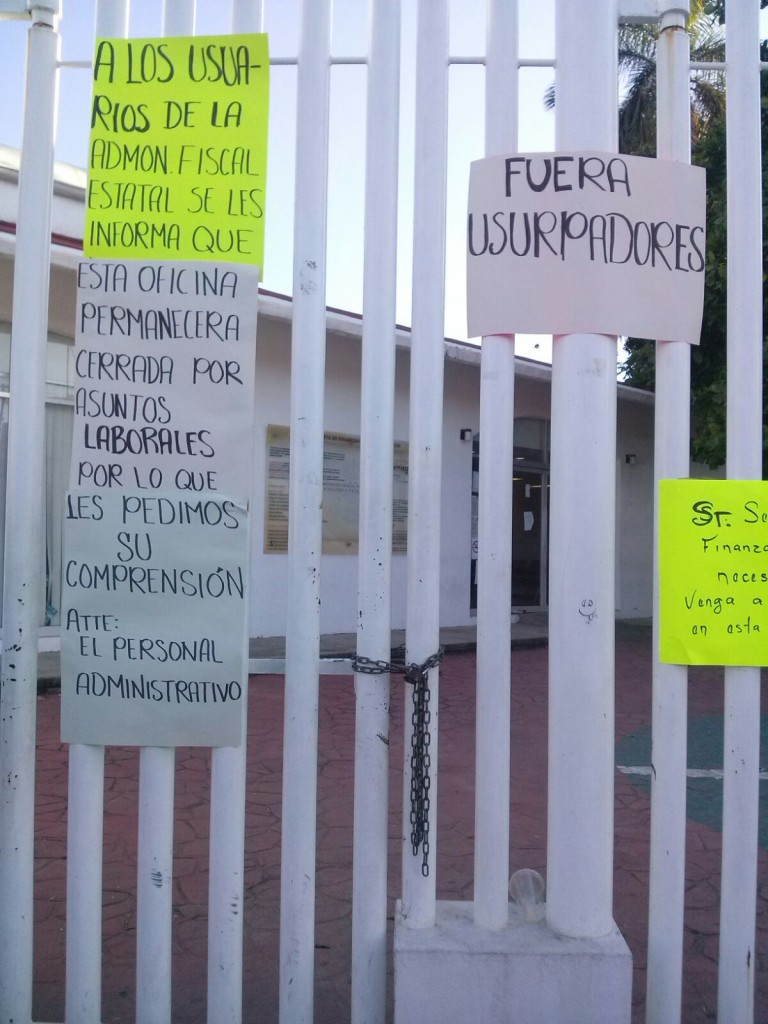 A LOS USUA-
RIOS DE LA
ADMON. FISCAL
ESTATAL SE LES
INFORMA QUE
ESTA OFICINA
PERMANECERA
CERRADA POR
ASUNTOS
LABORALES
POR LO QUE
LES PEDIMOS
SU
COMPRENSIÓN
ATTE:
EL PERSONAL
ADMINISTRATIVO
FUERA
USURPADORES
Sr.
Venga a
en esta